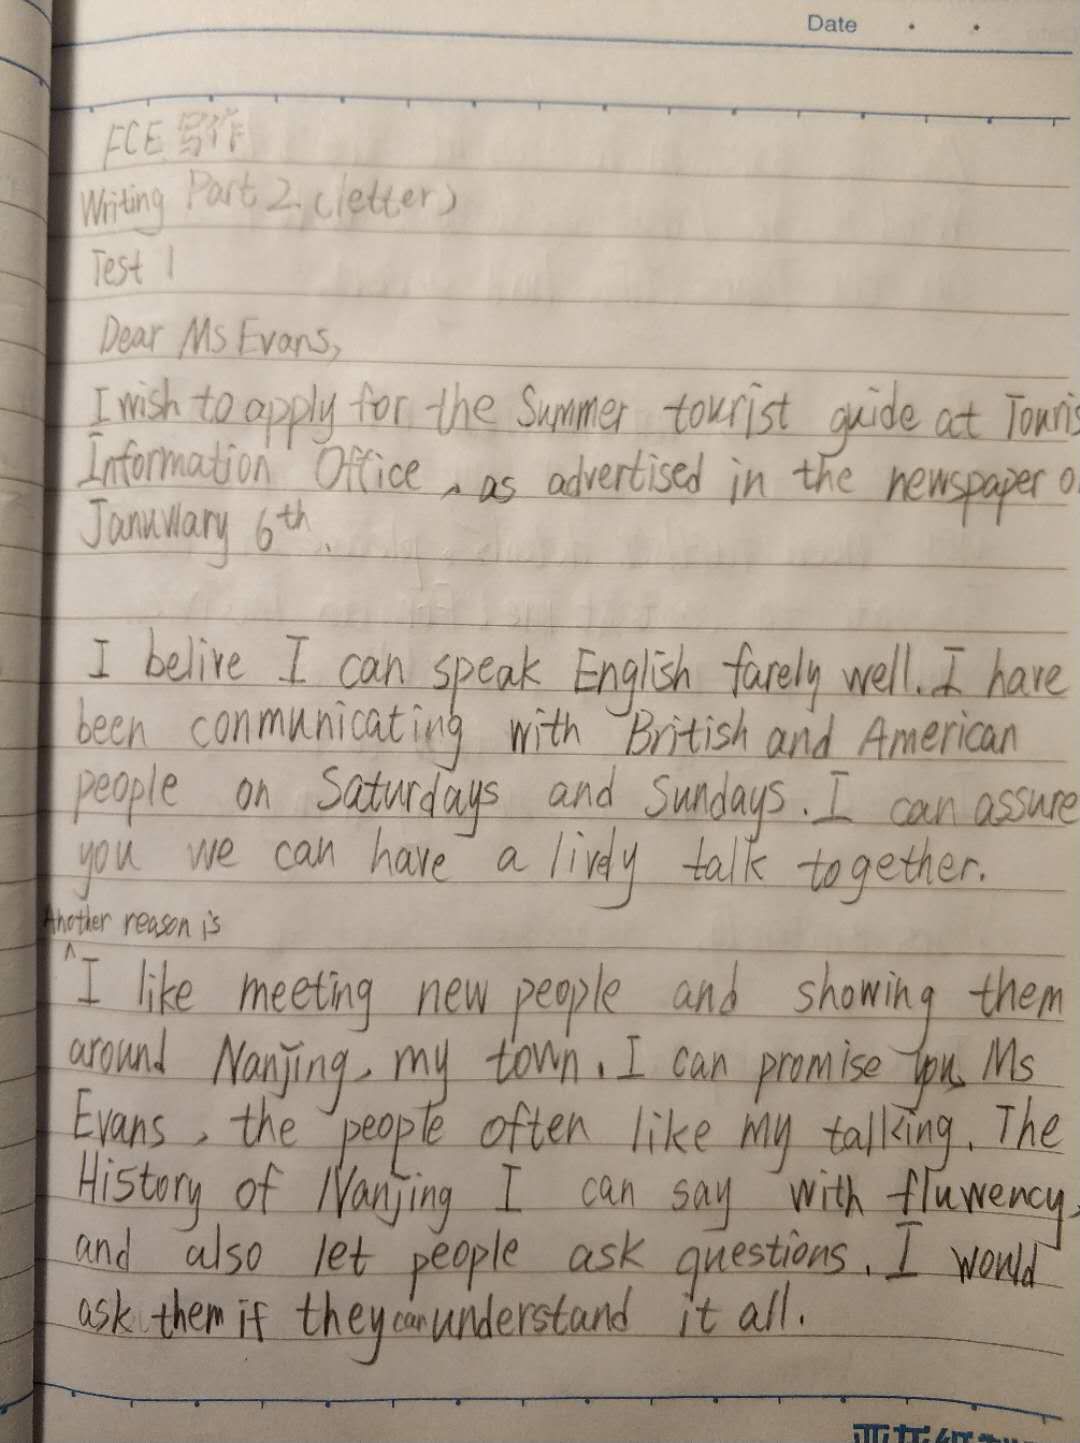 Date
FCE 写作
Writing Part 2 (letter)
Test 1
Dear Ms Evans,
I wish to apply for the Summer tourist guide at
Information Office, as advertised in the newspaper
Januwary 6th.
I belive I can speak English farely well. I have
been conmunicating with British and American
people on Saturdays and Sundays. I can assure
you we can have a lively talk together.
Another reason is
^
I like meeting new people and showing them
around Nanjing, my town. I can promise you, Ms
Evans, the people often like my talking. The
History of Nanjing I can say with fluwency,
and also let people ask questions. I would
ask them if they can understand it all.